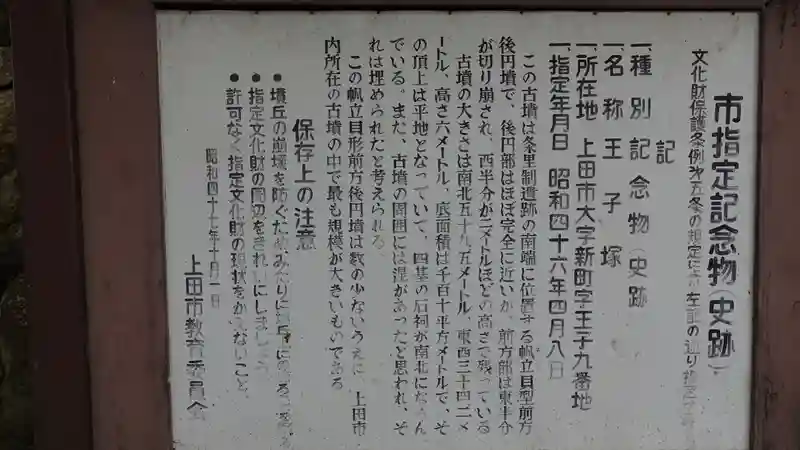 市指定記念物(史跡)
文化財保護条例第五条の規定により左記の通り指定
記
一、種別 記念物(史跡)
一、名称 王子塚
一、所在地 上田市大字新町字王子九番地
一、指定年月日 昭和四十六年四月八日
この古墳は条里制遺跡の南端に位置する帆立貝型前方
後円墳で、後円部はほぼ完全に近いが、前方部は東半分
が切り崩され、西半分が二メートルほどの高さで残っている
古墳の大きさは南北五十九・五メートル、東西三十四・二メ
ートル、高さ六メートル、底面積は千百十平方メートルで、そ
の頂上は平地となっていて、四基の石祠が南北にならん
でいる。また、古墳の周囲には湟があったと思われ、そ
れは埋められたと考えられる。
この帆立貝形前方後円墳は数の少ないうえに、上田市
内所在の古墳の中で最も規模が大きいものである
保存上の注意
●墳丘の崩壊を防ぐためみだりに墳丘にのぼらないこと
●指定文化財の周辺をきれいにしましょう
●許可なく指定文化財の現状をかえないこと
昭和四十七年十月一日
上田市教育委員会